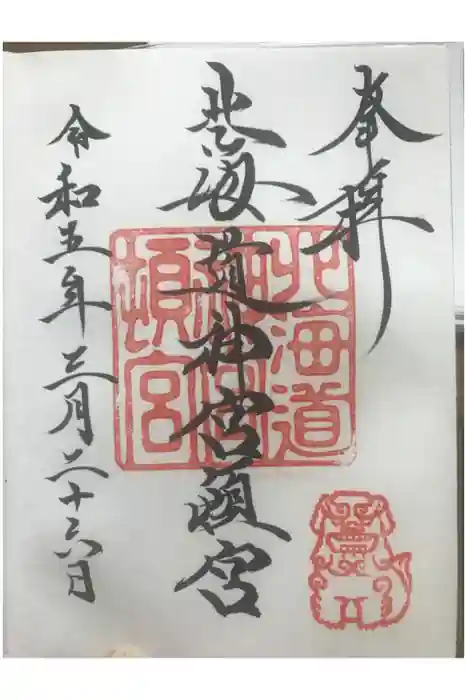 奉拝
北海道神宮頓宮
令和五年三月二十六日
北海道
神宮
頓宮